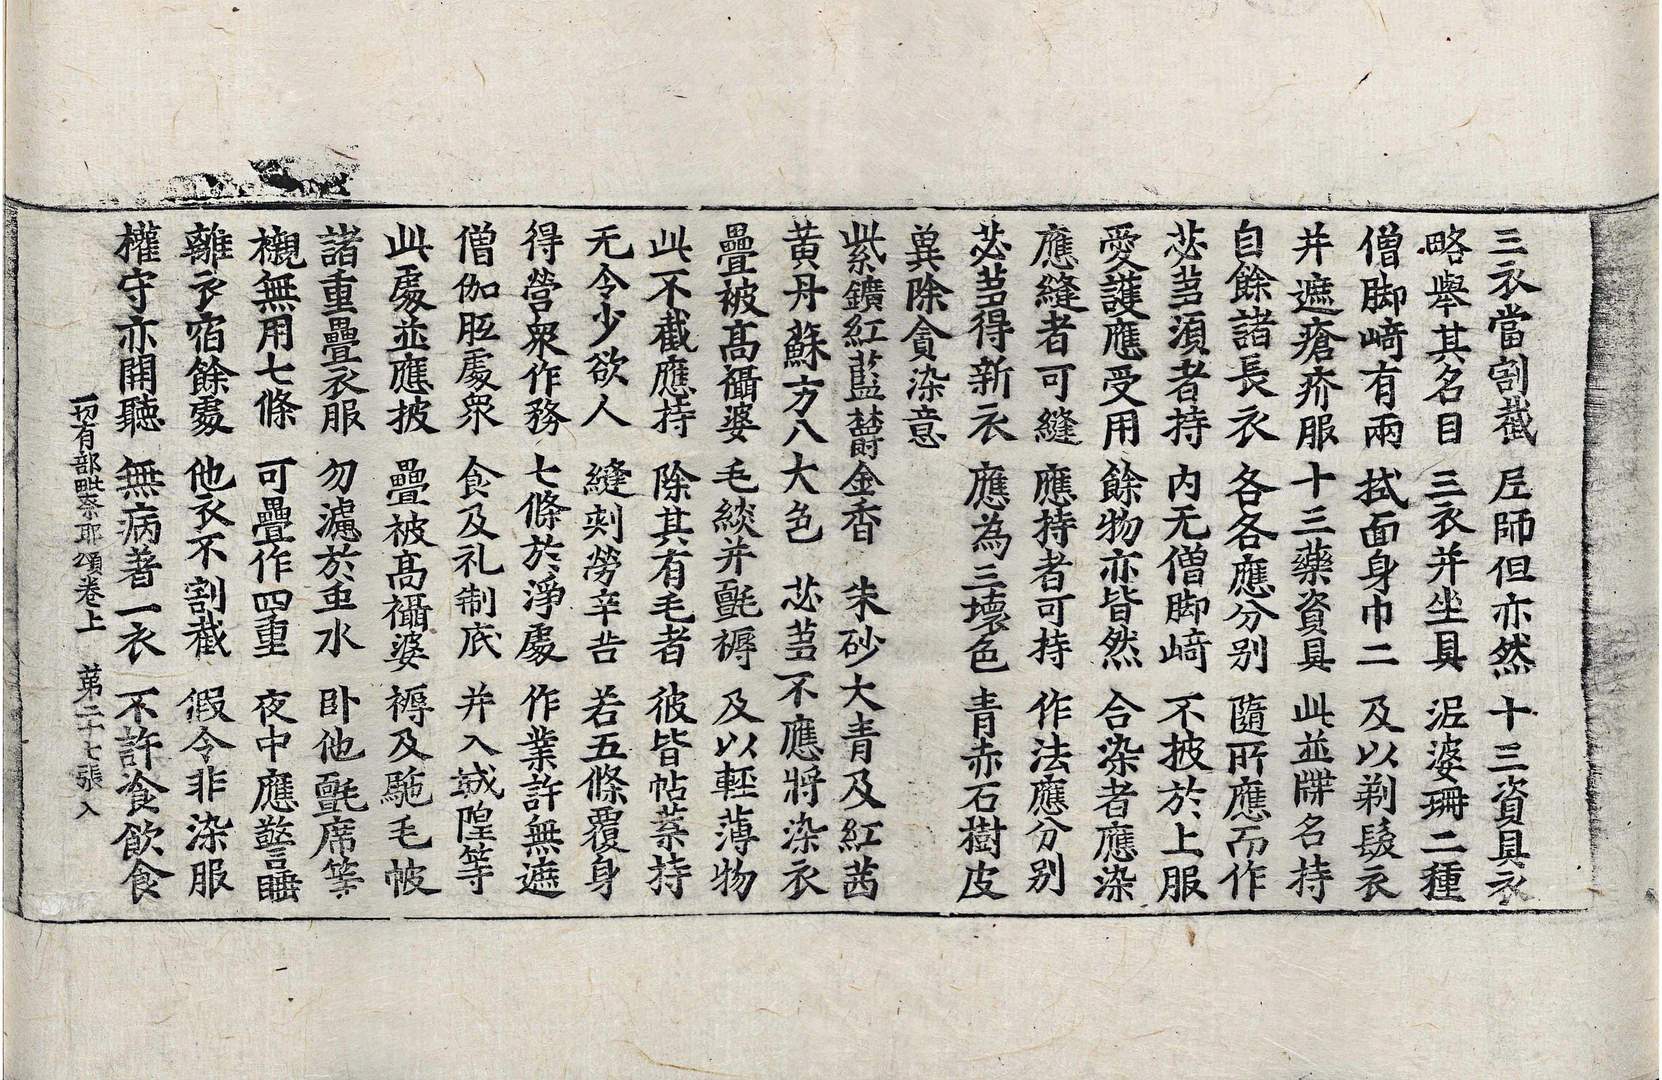 三衣當割截　尼師但亦然　十三資具衣
略舉其名目　三衣并坐具　泥婆珊二種
僧脚﨑有兩　拭面身巾二　及以剃髮衣
并遮瘡疥服　十三藥資具　此並牒名持
自餘諸長衣　各各應分别　隨所應而作
苾芻須者持　内无僧脚﨑　不披於上服
愛護應受用　餘物亦皆然　合染者應染
應縫者可縫　應持者可持　作法應分别
苾芻得新衣　應為三壞色　青赤石樹皮
兾除貪染意
紫鑛紅藍欝金香　朱砂大青及紅茜
黄丹蘇方八大色　苾芻不應將染衣
疊被髙襵婆　毛緂并氎褥　及以輕薄物
此不截應持　除其有毛者　彼皆帖葉持
无令少欲人　縫刾勞辛苦　若五條覆身
得營衆作務　七條於淨處　作業許無遮
僧伽胝處衆　食及礼制底　并入城隍等
此處並應披　疊被髙襵婆　褥及駞毛帔
諸重疊衣服　勿濾於虫水　卧他氎席等
襯無用七條　可疊作四重　夜中應警睡
離衣宿餘處　他衣不割截　假令非染服
權守亦開聽　無病著一衣　不許飡飲食
一切有部毗奈耶頌卷上　第二十七張　入